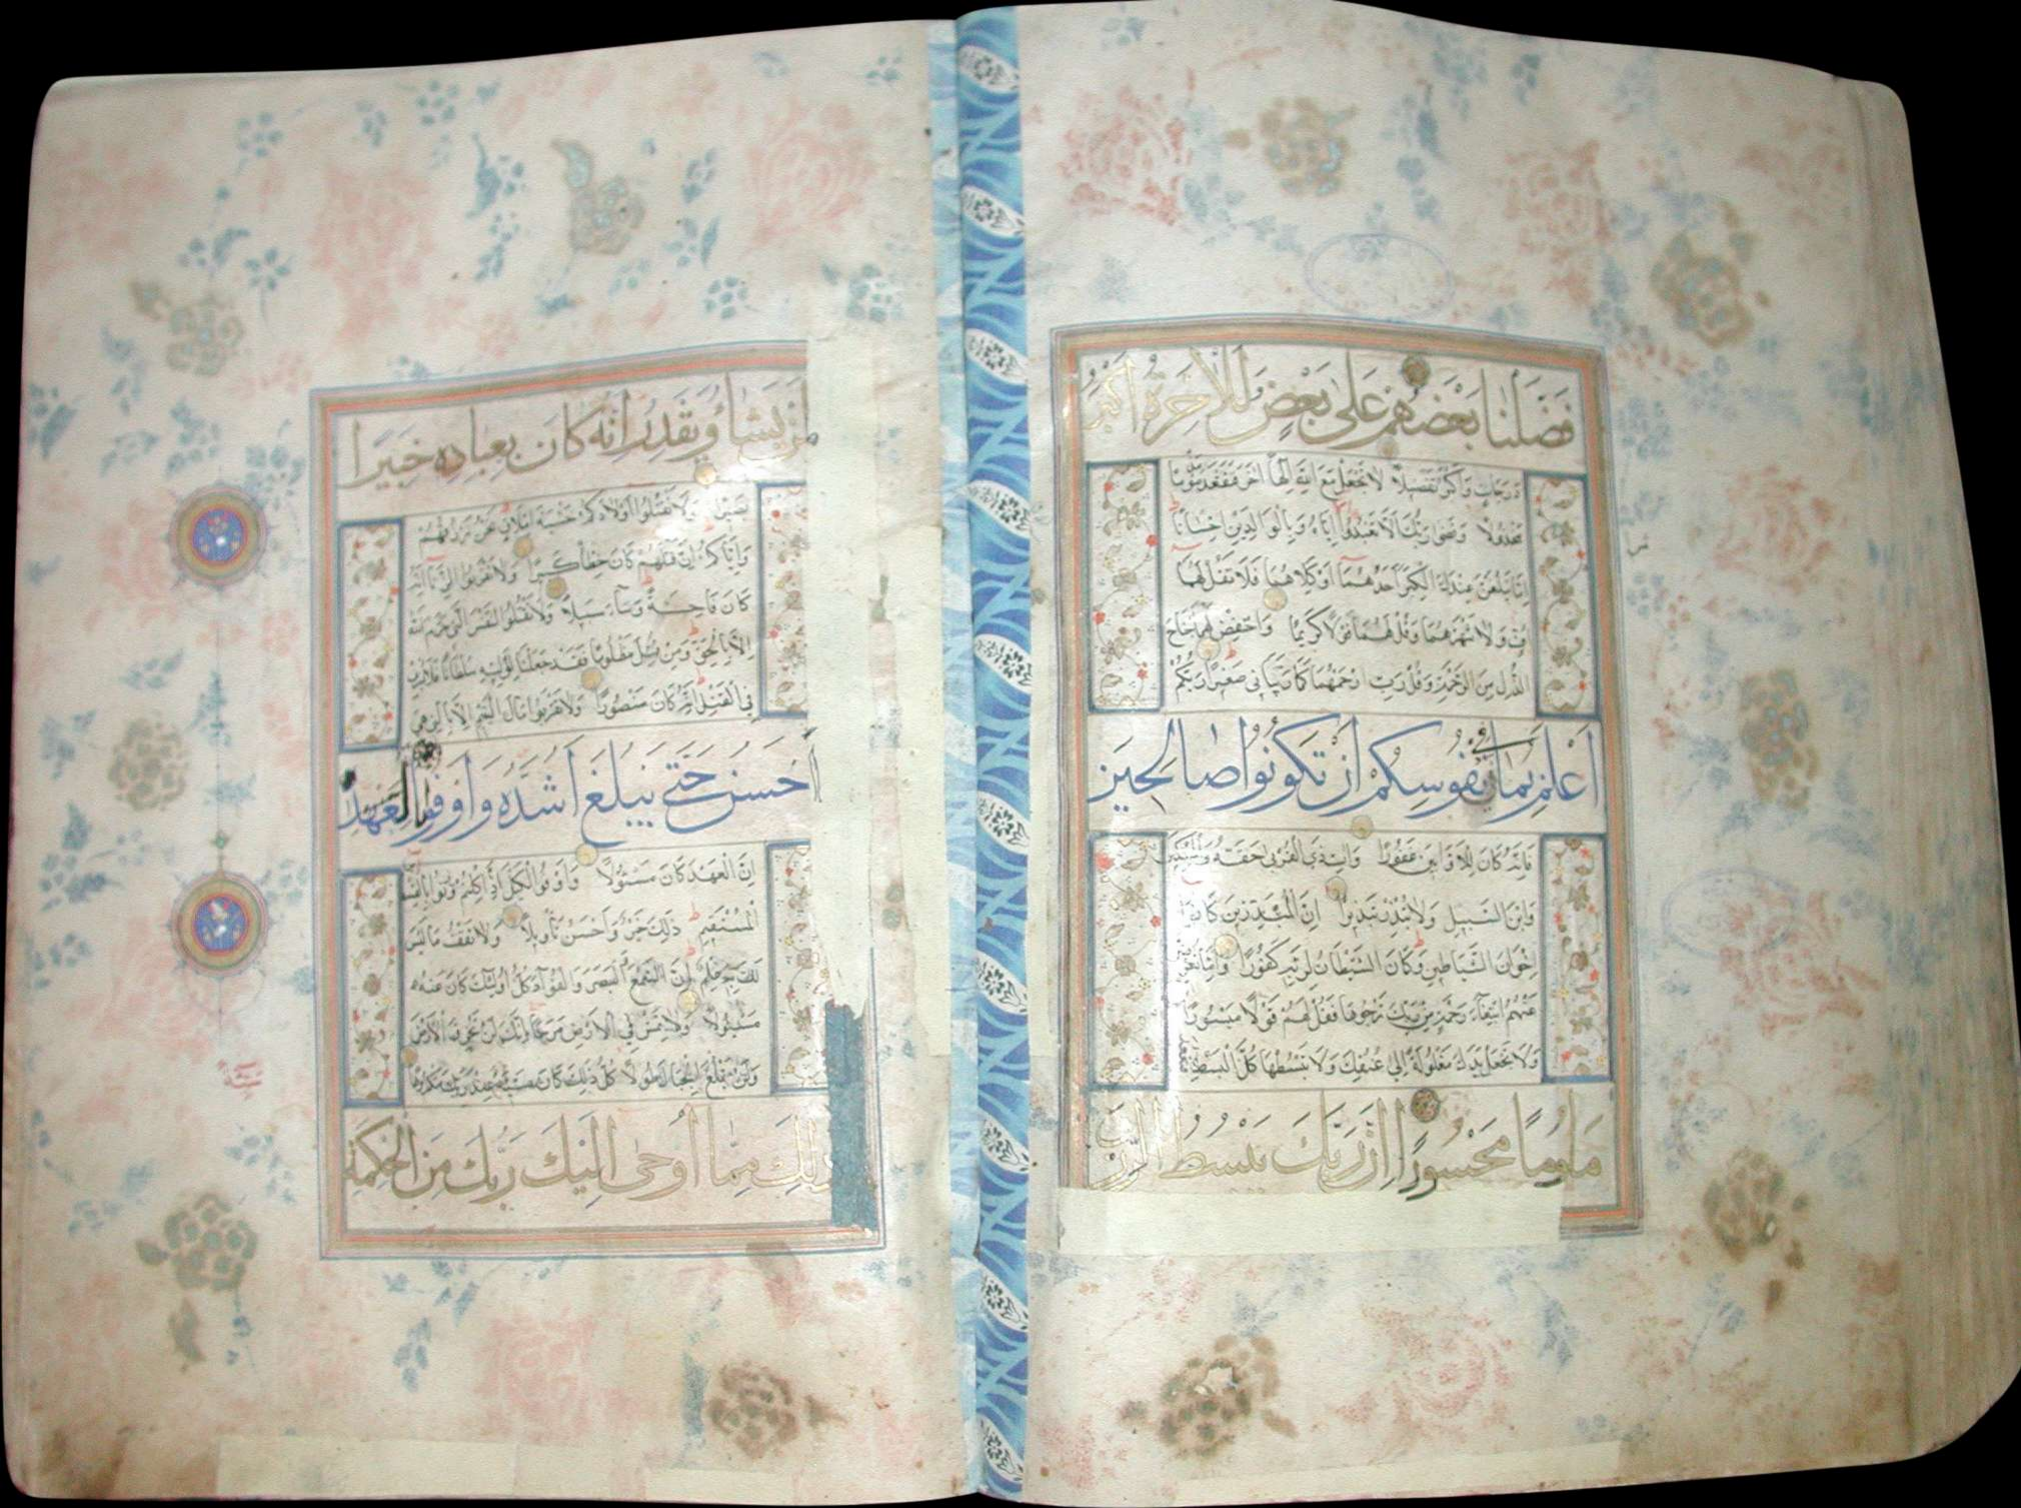 فَضَّلْنَا بَعْضَهُمْ عَلَى بَعْضٍ وَلَلْآخِرَةُ أَكْبَرُ
دَرَجَاتٍ وَأَكْبَرُ تَفْضِيلًا لَا تَجْعَلْ مَعَ اللَّهِ إِلَهًا آخَرَ فَتَقْعُدَ مَذْمُومًا
مَخْذُولًا وَقَضَى رَبُّكَ أَلَّا تَعْبُدُوا إِلَّا إِيَّاهُ وَبِالْوَالِدَيْنِ إِحْسَانًا
إِمَّا يَبْلُغَنَّ عِنْدَكَ الْكِبَرَ أَحَدُهُمَا أَوْ كِلَاهُمَا فَلَا تَقُلْ لَهُمَا
أُفٍّ وَلَا تَنْهَرْهُمَا وَقُلْ لَهُمَا قَوْلًا كَرِيمًا وَاخْفِضْ لَهُمَا جَنَاحَ
الذُّلِّ مِنَ الرَّحْمَةِ وَقُلْ رَبِّ ارْحَمْهُمَا كَمَا رَبَّيَانِي صَغِيرًا رَبُّكُمْ
أَعْلَمُ بِمَا فِي نُفُوسِكُمْ إِنْ تَكُونُوا صَالِحِينَ
فَإِنَّهُ كَانَ لِلْأَوَّابِينَ غَفُورًا وَآتِ ذَا الْقُرْبَى حَقَّهُ وَالْمِسْكِينَ
وَابْنَ السَّبِيلِ وَلَا تُبَذِّرْ تَبْذِيرًا إِنَّ الْمُبَذِّرِينَ كَانُوا
إِخْوَانَ الشَّيَاطِينِ وَكَانَ الشَّيْطَانُ لِرَبِّهِ كَفُورًا وَإِمَّا تُعْرِضَنَّ
عَنْهُمُ ابْتِغَاءَ رَحْمَةٍ مِنْ رَبِّكَ تَرْجُوهَا فَقُلْ لَهُمْ قَوْلًا مَيْسُورًا
وَلَا تَجْعَلْ يَدَكَ مَغْلُولَةً إِلَى عُنُقِكَ وَلَا تَبْسُطْهَا كُلَّ الْبَسْطِ فَتَقْعُدَ
مَلُومًا مَحْسُورًا إِنَّ رَبَّكَ يَبْسُطُ الرِّزْقَ
يَشَاءُ وَيَقْدِرُ إِنَّهُ كَانَ بِعِبَادِهِ خَبِيرًا
بَصِيرًا وَلَا تَقْتُلُوا أَوْلَادَكُمْ خَشْيَةَ إِمْلَاقٍ نَحْنُ نَرْزُقُهُمْ
وَإِيَّاكُمْ إِنَّ قَتْلَهُمْ كَانَ خِطْأً كَبِيرًا وَلَا تَقْرَبُوا الزِّنَا إِنَّهُ
كَانَ فَاحِشَةً وَسَاءَ سَبِيلًا وَلَا تَقْتُلُوا النَّفْسَ الَّتِي حَرَّمَ اللَّهُ
إِلَّا بِالْحَقِّ وَمَنْ قُتِلَ مَظْلُومًا فَقَدْ جَعَلْنَا لِوَلِيِّهِ سُلْطَانًا فَلَا يُسْرِفْ
فِي الْقَتْلِ إِنَّهُ كَانَ مَنْصُورًا وَلَا تَقْرَبُوا مَالَ الْيَتِيمِ إِلَّا بِالَّتِي هِيَ
أَحْسَنُ حَتَّى يَبْلُغَ أَشُدَّهُ وَأَوْفُوا بِالْعَهْدِ
إِنَّ الْعَهْدَ كَانَ مَسْئُولًا وَأَوْفُوا الْكَيْلَ إِذَا كِلْتُمْ وَزِنُوا بِالْقِسْطَاسِ
الْمُسْتَقِيمِ ذَلِكَ خَيْرٌ وَأَحْسَنُ تَأْوِيلًا وَلَا تَقْفُ مَا لَيْسَ
لَكَ بِهِ عِلْمٌ إِنَّ السَّمْعَ وَالْبَصَرَ وَالْفُؤَادَ كُلُّ أُولَئِكَ كَانَ عَنْهُ
مَسْئُولًا وَلَا تَمْشِ فِي الْأَرْضِ مَرَحًا إِنَّكَ لَنْ تَخْرِقَ الْأَرْضَ
وَلَنْ تَبْلُغَ الْجِبَالَ طُولًا كُلُّ ذَلِكَ كَانَ سَيِّئُهُ عِنْدَ رَبِّكَ مَكْرُوهًا
ذَلِكَ مِمَّا أَوْحَى إِلَيْكَ رَبُّكَ مِنَ الْحِكْمَةِ